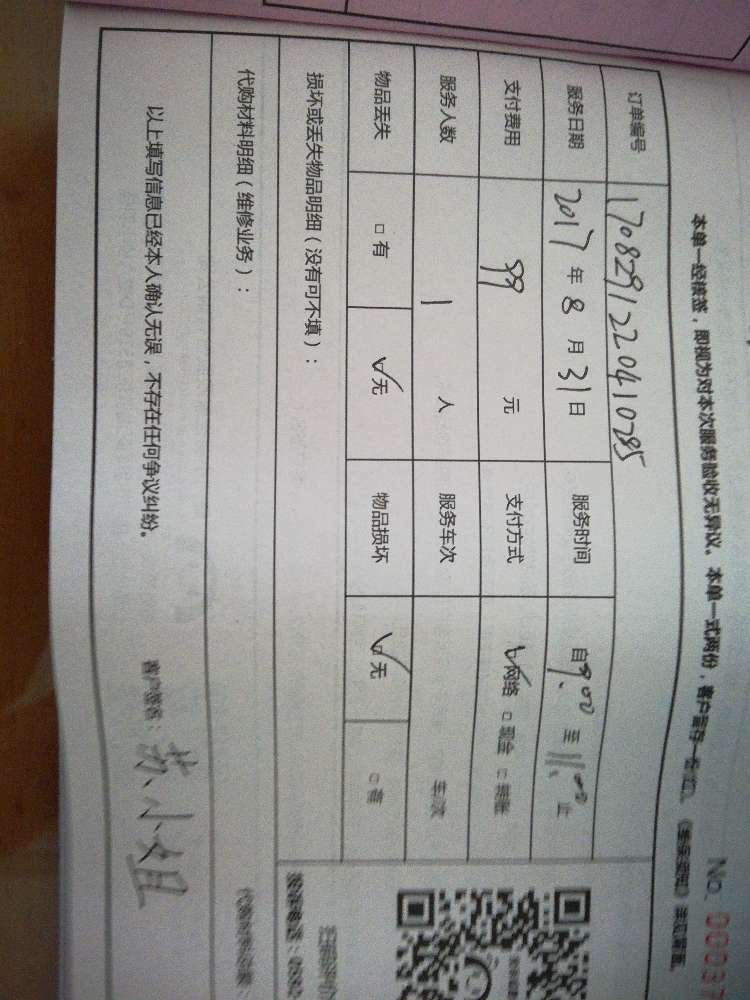 No. 00037
本单一经填签，即视为对本次服务验收无异议。本单一式两份，客户留存一份
订单编号 1708291220410785
服务日期 2017年8月31日 服务时间 自9:00至11:00止
支付费用 99元 支付方式 ☑网络 □现金 □转账
服务人数 1人 服务车次 车次
物品丢失 □有 ☑无 物品损坏 ☑无 □有
损坏或丢失物品明细（没有可不填）：
代购材料明细（维修业务）：
以上填写信息已经本人确认无误，不存在任何争议纠纷。
客户签名：苏小姐